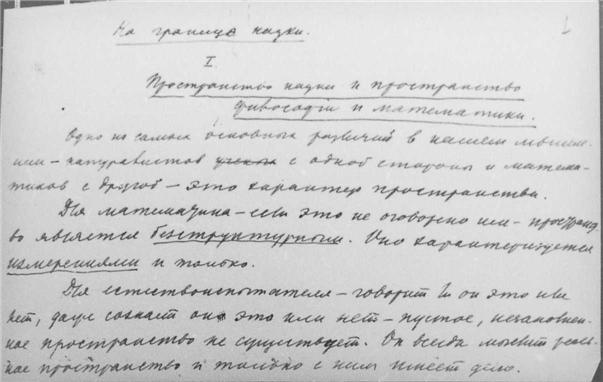 На границе науки.
I.
Пространство науки и пространство
философии и математики.
Одно из самых основных различий в нашем мышле-
нии – натуралистов с одной стороны и матема-
тиков с другой – это характер пространства.
Для математика – если это не оговорено им – пространст-
во является безструктурным. Оно характеризуется
измерениями и только.
Для естествоиспытателя – говорит ли он это или
нет, даже сознает он это или нет – пустое, незаполнен-
ное пространство не существует. Он всегда мыслит реаль-
ное пространство и только с ним имеет дело.